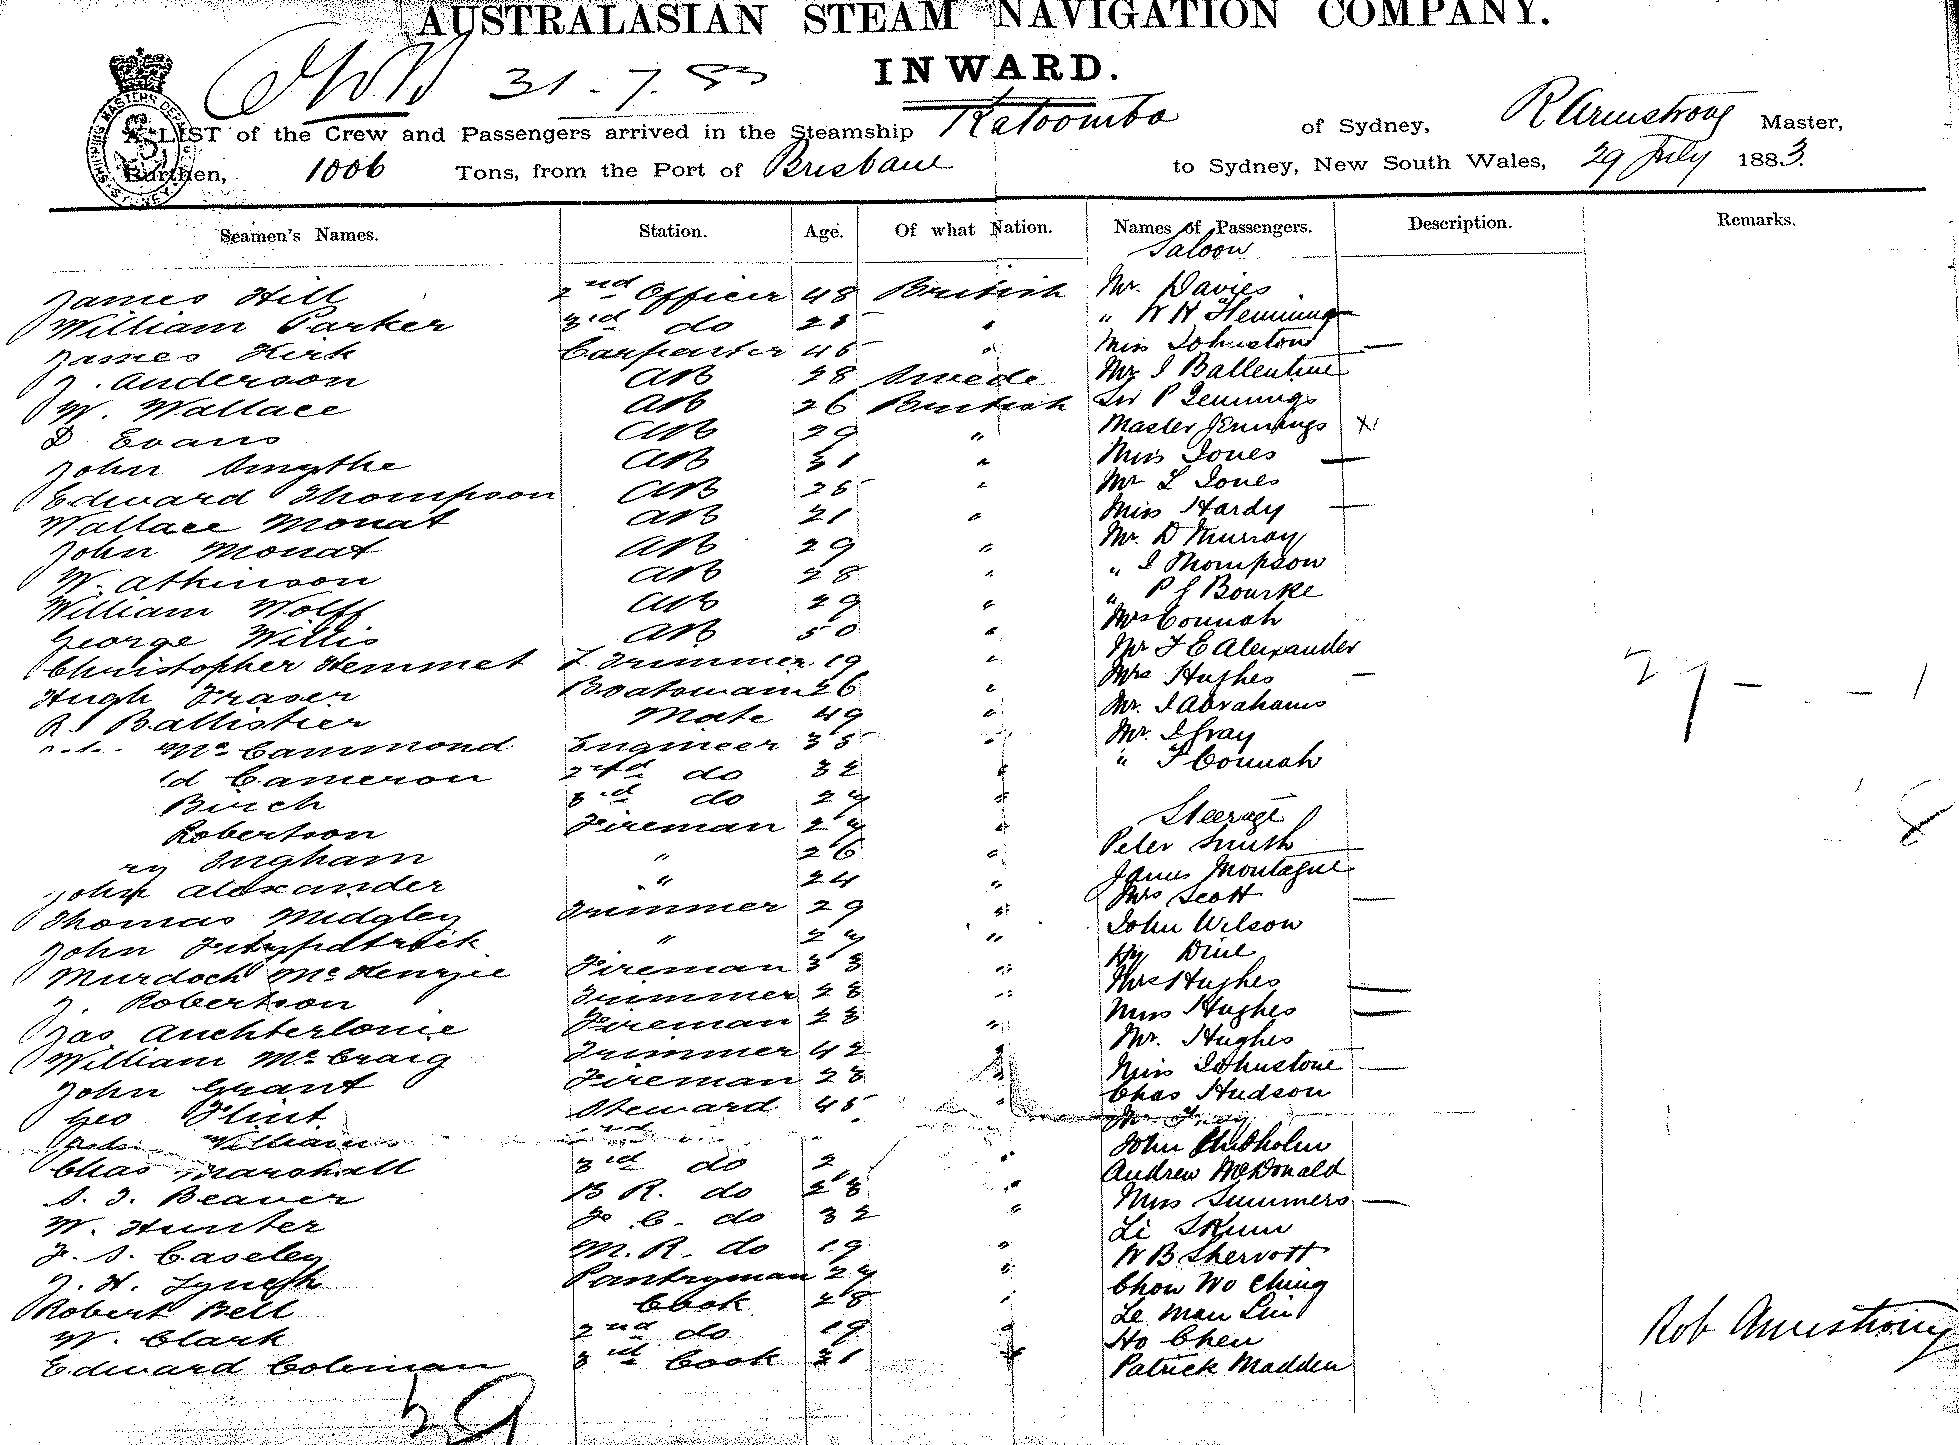 AUSTRALASIAN STEAM NAVIGATION COMPANY.
31.7.83
INWARD.
A LIST of the Crew and Passengers arrived in the Steamship Katoomba of Sydney, R Armstrong Master,
Burthen, 1006 Tons, from the Port of Brisbane to Sydney, New South Wales, 29 July 1883.
Seamen's Names. Station. Age. Of what Nation. Names of Passengers. Description. Remarks.
Saloon
James Hill 2nd Officer 48 British Mr. Davies
William Parker 3rd do 25 " " W H Flemming
James Kirk Carpenter 45 " Miss Johnston —
J. Anderson AB 28 Swede Mr J Ballentine
W. Wallace AB 26 British Sir P Jennings
D Evans AB 29 " Master Jennings x
John Smythe AB 31 " Miss Jones —
Edward Thompson AB 25 " Mr L Jones
Wallace Monat AB 21 " Miss Hardy —
John Monat AB 29 " Mr. D Murray
W. Atkinson AB 28 " " J Thompson
William Wolff AB 29 " " P J Bourke
George Willis AB 50 " Mrs Connah
Christopher Hemmet Trimmer 19 " Mr F E Alexander
Hugh Fraser Boatswain 26 " Mrs Hughes —
R. Ballistier Mate 49 " Mr. J Abrahams
McCammond Engineer 35 " Mr. J Gray
d Cameron 2nd do 32 " " F Connah
Birch 3rd do 27 "
Steerage
Robertson Fireman 27 "
ry Ingham " 26 " Peter Smith
John Alexander " 24 " James Montague
Thomas Midgley Trimmer 29 " Mrs Scott —
John Fitzpatrick " 27 " John Wilson
Murdoch McKenzie Fireman 33 " Hy
J. Robertson Trimmer 23 " Mrs Hughes —
Jas Auchterlonie Fireman 23 " Miss Hughes —
William McCraig Trimmer 42 " Mr. Hughes
John Grant Fireman 23 " Miss Johnstone —
Geo Flint Steward 45 " Chas Hudson
Williams
Chas Marshall 3rd do 2 " John Chisholm
S. J. Beaver B R. do 23 " Andrew McDonald
W. Hunter F. C. do 32 " Miss Summers —
F. S. Caseley M. R. do 19 " Li
J. H. Lynch Pantryman 27 " W B Shervott
Robert Bell Cook 28 " Chow Wo Ching
W. Clark 2nd do 19 " Ho Chen
Edward Coleman 3rd Cook 21 " Patrick Madden
Rob Armstrong
39